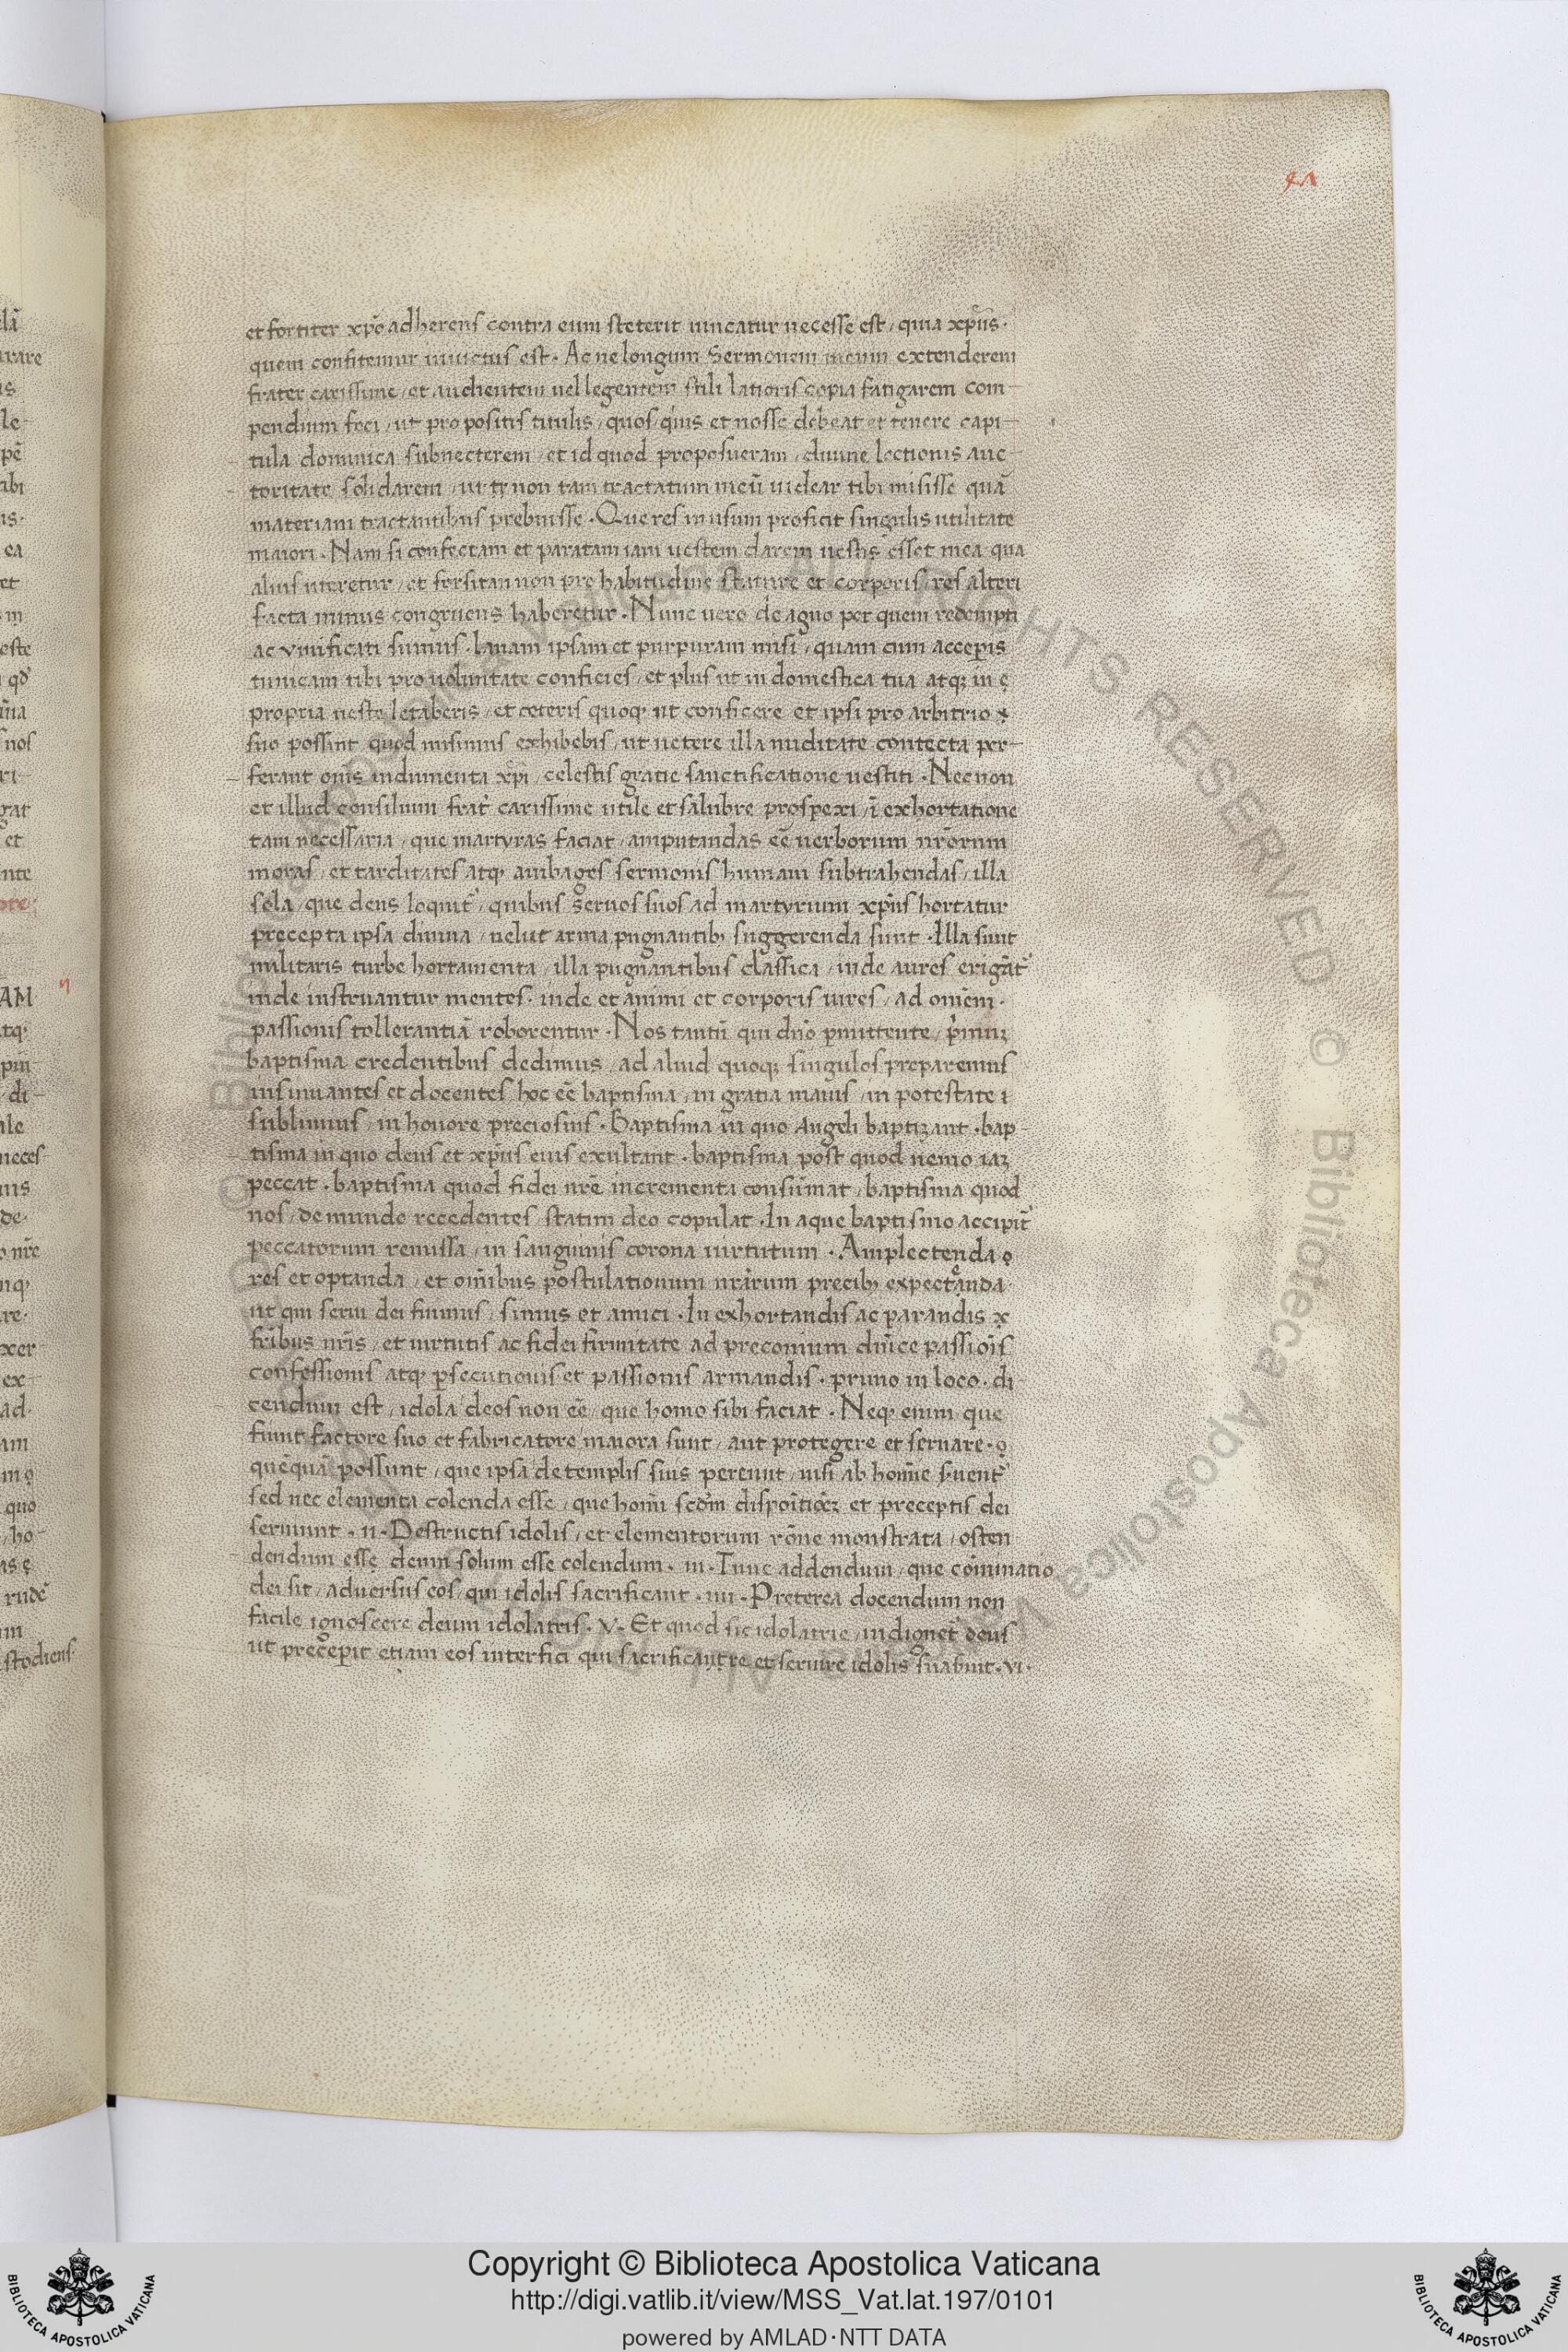 et fortiter xp̄o adherens contra eum steterit uincatur necesse est, quia xp̄us.
quem confitemur inuictus est. Ac ne longum Sermonem meum extenderem
frater carissime, et audientem uel legentem stili latioris copia fatigarem com-
pendium feci, ut propositis titulis, quos quis et nosse debeat et tenere capi-
tula dominica subnecterem, et id quod proposueram, diuine lectionis auc-
toritate solidarem, ut non tam tractatum meū uidear tibi misisse quā
materiam tractantibus prebuisse. Que res in usum proficit singulis utilitate
maiori. Nam si confectam et paratam iam uestem darem uestis esset mea qua
alius uteretur, et forsitan non pro habitudine stature et corporis, res alteri
facta minus congruens haberetur. Nunc uero de agno per quem redempti
ac viuificati sumus. lanam ipsam et purpuram misi, quam cum acceperis
tunicam tibi pro uoluntate conficies, et plus ut in domestica tua atq; in
propria ueste letaberis, et ceteris quoq; ut conficere et ipsi pro arbitrio
suo possint, quod misimus exhibebis, ut uetere illa nuditate contecta per-
ferant om̄s indumenta xp̄i, celestis gratie sanctificatione uestiti. Nec non
et illud consilium frat̄ carissime utile et salubre prospexi, ī exhortatione
tam necessaria, que martyras faciat, amputandas eē uerborum nr̄orum
moras, et tarditates atq; ambages sermonis humani subtrahendas, illa
sola, que deus loquit̄, quibus seruos suos ad martyrium xp̄us hortatur
precepta ipsa diuina, uelut arma pugnantib; suggerenda sunt. Illa sint
militaris turbe hortamenta, illa pugnantibus classica, inde aures erigāt̄
inde instruantur mentes. inde et animi et corporis uires, ad omēm.
passionis tollerantiā roborentur. Nos tantū qui dn̄o pmittente, p̄muꝫ
baptisma credentibus dedimus, ad aliud quoq; singulos preparemus
insinuantes et docentes hoc eē baptisma, in gratia maius, in potestate
sublimius, in honore preciosius. Baptisma in quo Angeli baptizant. bap-
tisma in quo deus et xp̄us eius exultant. baptisma post quod nemo iaꝫ
peccat. baptisma quod fidei nr̄e incrementa consūmat, baptisma quod
nos, de mundo recedentes, statim deo copulat. In aque baptismo accipit̄
peccatorum remissa, in sanguinis corona uirtutum. Amplectenda
res et optanda, et om̄ibus postulationum nr̄arum precib; expectanda.
ut qui serui dei fuimus, simus et amici. In exhortandis ac parandis
fr̄ibus nr̄is, et uirtutis ac fidei firmitate ad preconium dn̄ice passiōis
confessionis atq; psecutionis et passionis armandis. primo in loco. di-
cendum est, idola deos non eē, que homo sibi faciat. Neq; enim que
fiunt factore suo et fabricatore maiora sunt, aut protegere et seruare.
quēquā possunt, que ipsa de templis suis pereunt, nisi ab homīe s̄uent̄
sed nec elementa colenda esse, que homī scd̄m et preceptis dei
seruiunt. II. Destructis idolis, et elementorum rōne monstrata, osten-
dendum esse deum solum esse colendum. III. Tunc addendum, que cōminatio
dei sit, aduersus eos, qui idolis sacrificant. IIII. Preterea docendum non
facile ignoscere deum idolatris. V. Et quod sic idolatrie, indignet̄ deus
ut preceperit etiam eos interfici qui sacrificantre et seruire idolis suaserint. VI.
Copyright © Biblioteca Apostolica Vaticana
http://digi.vatlib.it/view/MSS_Vat.lat.197/0101
powered by AMLAD·NTT DATA